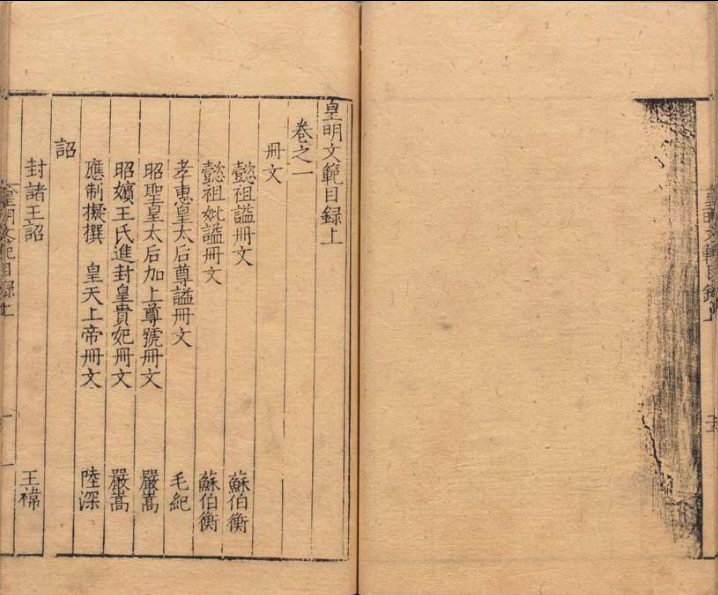 皇明文範目録上
卷之一
冊文
懿祖謚冊文 蘇伯衡
懿祖妣謚冊文 蘇伯衡
孝惠皇太后尊謚冊文 毛紀
昭聖皇太后加上尊號冊文 嚴嵩
昭嬪王氏進封皇貴妃冊文 嚴嵩
應制擬撰 皇天上帝冊文 陸深
詔
封諸王詔 王褘
皇明文範目録上
一